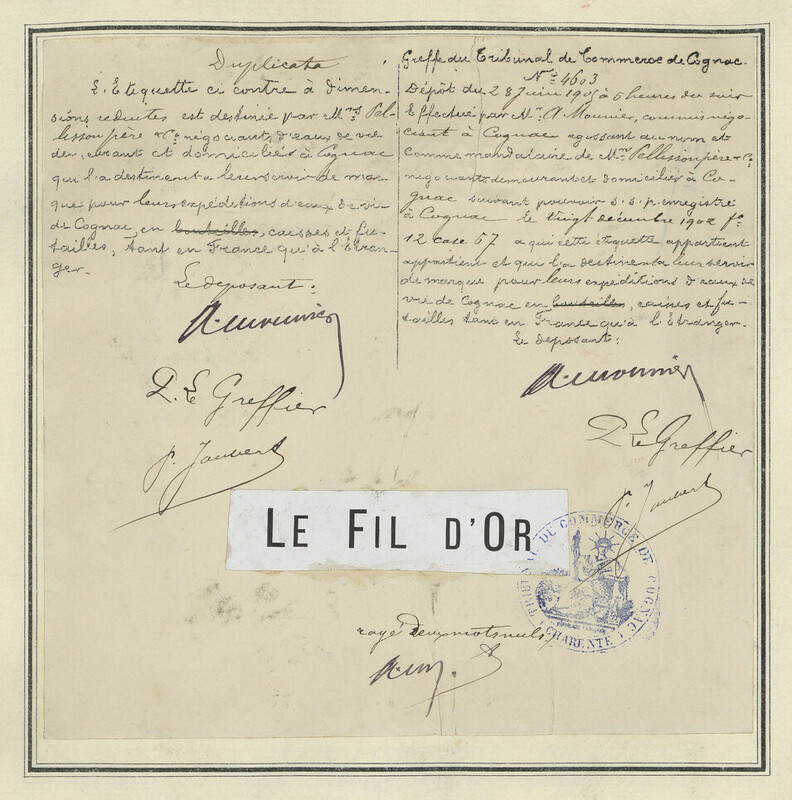 Duplicata
L'Etiquette ci contre à dimen-
sions réduites est destinée par Mrs Pel-
lisson père & Co négociants d'eaux de vie
demeurant et domiciliés à Cognac
qui l'a destinent a leur servir de mar-
que pour leurs expéditions d'eaux de vie
de Cognac, en bouteilles, caisses et fu-
tailles, tant en France qu'à l'Etran-
ger.
Le deposant:
A. Mounier
P. Le Greffier
P. Jauvert
Greffe du Tribunal de Commerce de Cognac.
No 4603
Dépôt du 28 Juin 1905 à 5 heures du soir
Effectué par Mr A Mounier, commis négo-
ciant à Cognac agissant au nom et
comme mandataire de Mrs Pellisson père & Co
negociants demeurant et domiciliés à Co-
gnac suivant pouvoir s.s.p. enregistré
à Cognac le vingt décembre 1902 fo
12 case 57 a qui cette étiquette appartient
appartient et qui l'a destinent a leur servir
de marque pour leurs expéditions d'eaux de
vie de Cognac en bouteilles, caisses et fu-
tailles tant en France qu'à l'Etranger.
Le deposant:
A. Mounier
P. Le Greffier
P. Jauvert
LE FIL D'OR
TRIBUNAL DE COMMERCE DE COGNAC
(CHARENTE)
rayé deux mots nuls